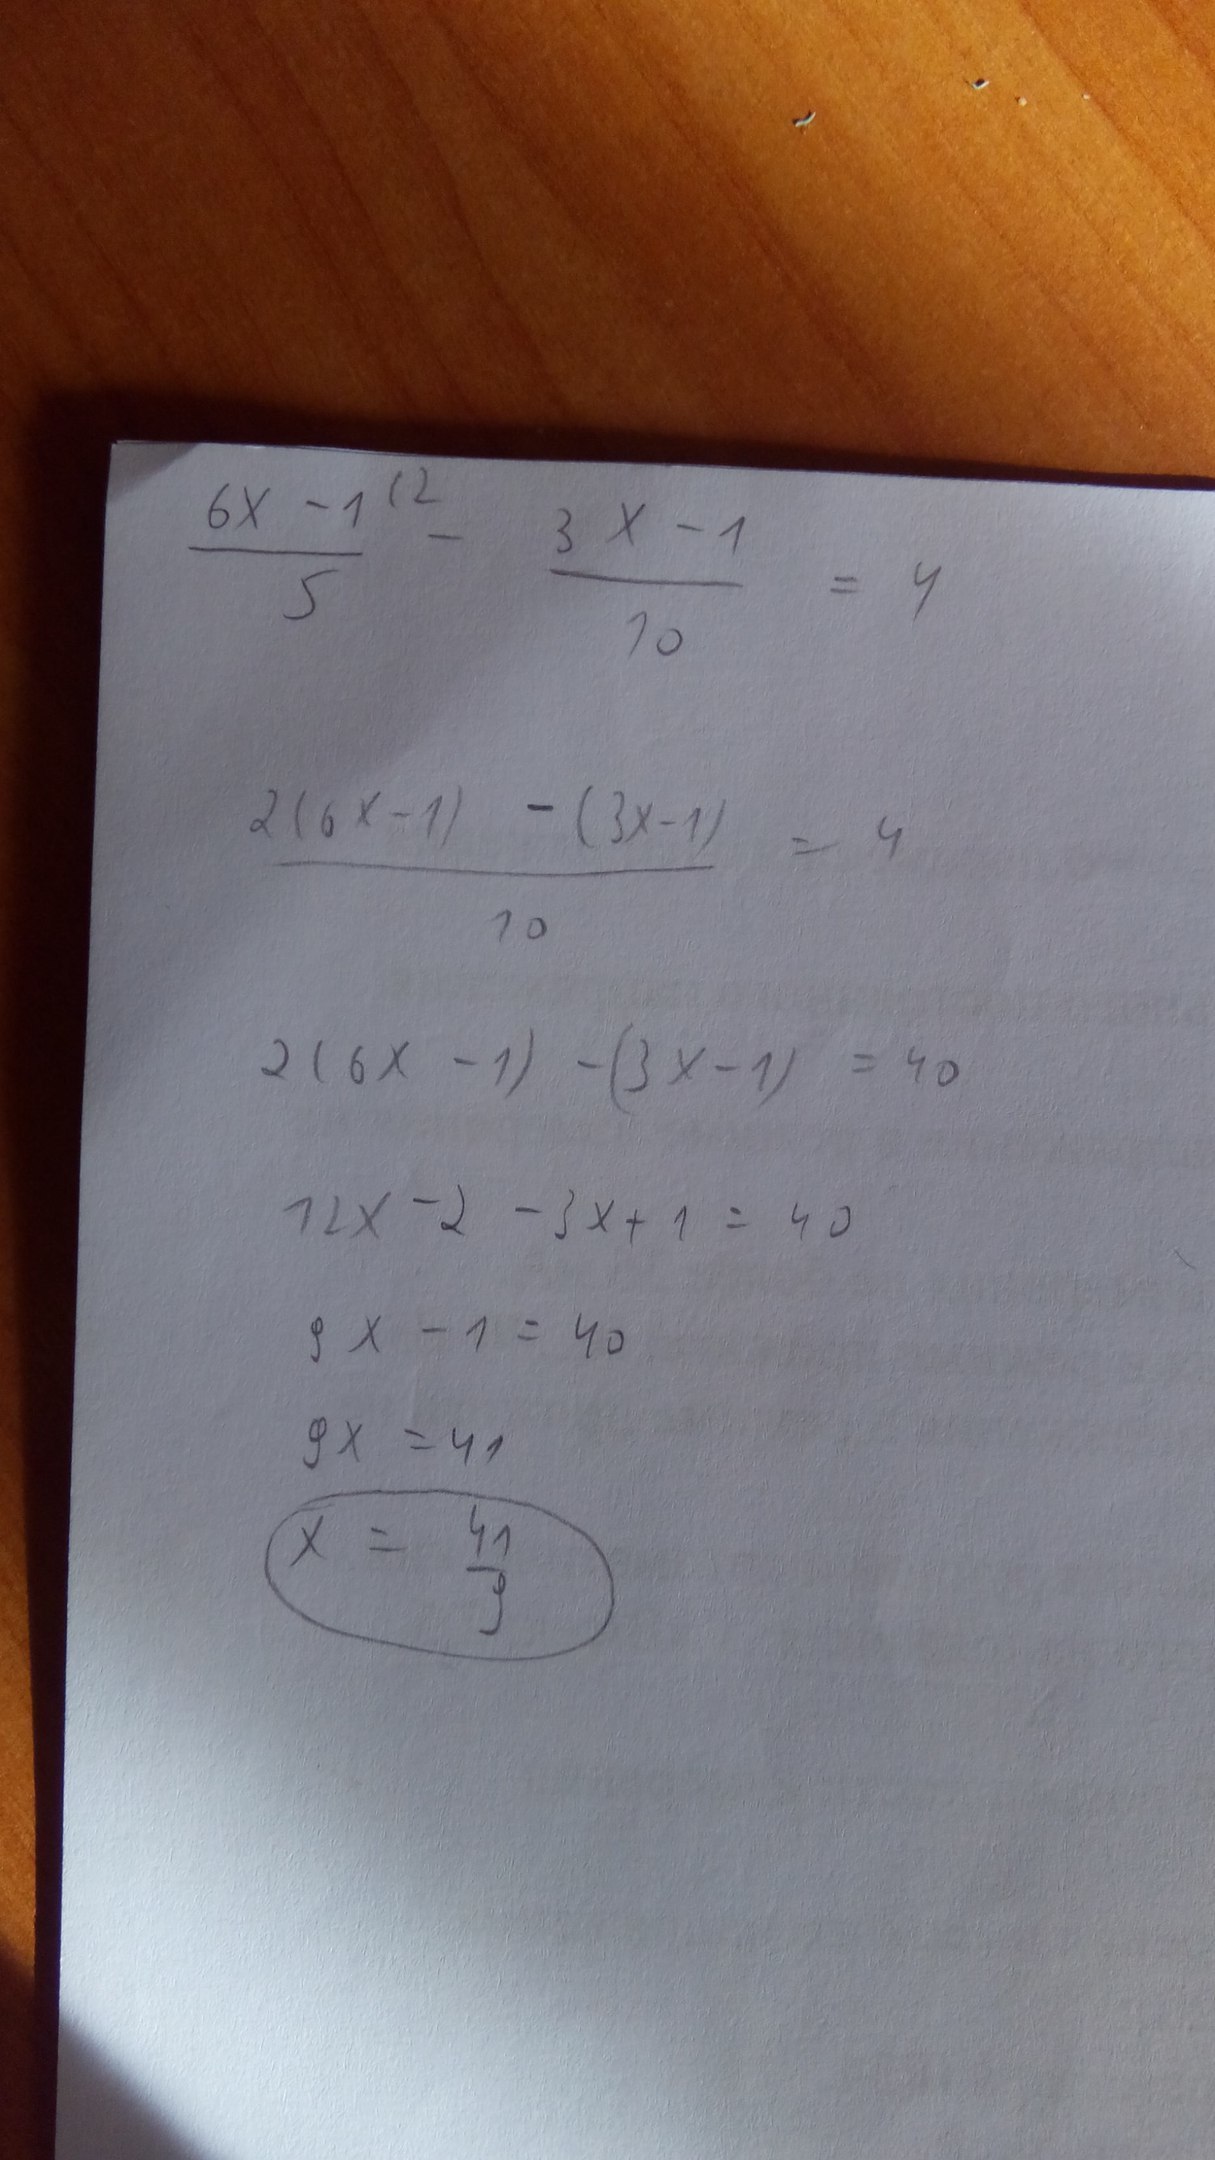 6x - 1 (2 - 3x - 1 = 4
5 10
2(6x-1) - (3x-1) = 4
10
2(6x - 1) - (3x - 1) = 40
12x - 2 - 3x + 1 = 40
9x - 1 = 40
9x = 41
x = 41
9